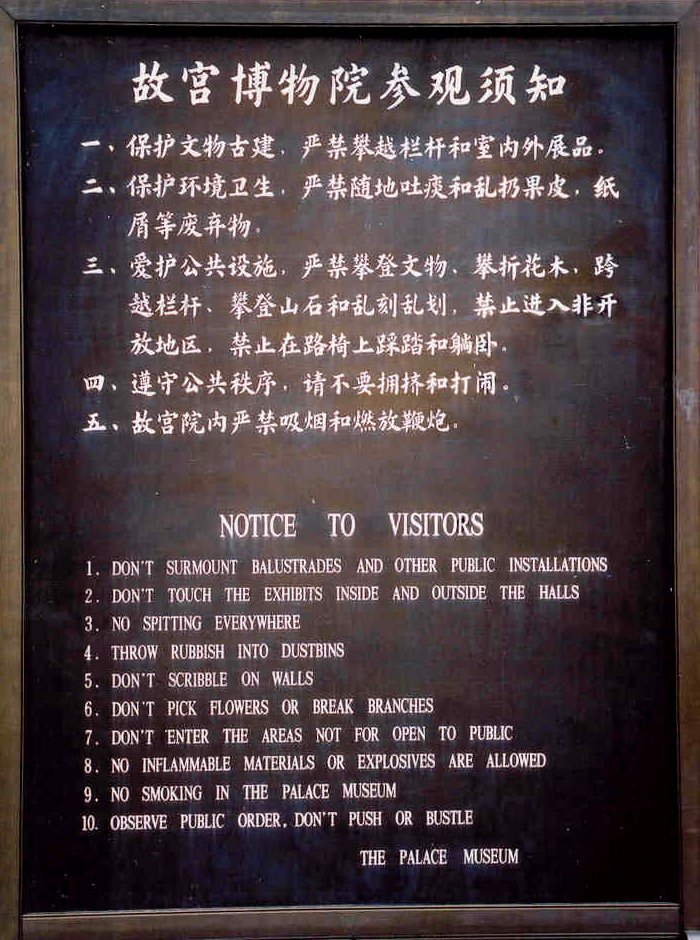 故宫博物院参观须知
一、保护文物古建，严禁攀越栏杆和室内外展品。
二、保护环境卫生，严禁随地吐痰和乱扔果皮，纸
屑等废弃物。
三、爱护公共设施，严禁攀登文物、攀折花木，跨
越栏杆、攀登山石和乱刻乱划，禁止进入非开
放地区，禁止在路椅上踩踏和躺卧。
四、遵守公共秩序，请不要拥挤和打闹。
五、故宫院内严禁吸烟和燃放鞭炮。
NOTICE TO VISITORS
1. DON'T SURMOUNT BALUSTRADES AND OTHER PUBLIC INSTALLATIONS
2. DON'T TOUCH THE EXHIBITS INSIDE AND OUTSIDE THE HALLS
3. NO SPITTING EVERYWHERE
4. THROW RUBBISH INTO DUSTBINS
5. DON'T SCRIBBLE ON WALLS
6. DON'T PICK FLOWERS OR BREAK BRANCHES
7. DON'T ENTER THE AREAS NOT FOR OPEN TO PUBLIC
8. NO INFLAMMABLE MATERIALS OR EXPLOSIVES ARE ALLOWED
9. NO SMOKING IN THE PALACE MUSEUM
10. OBSERVE PUBLIC ORDER, DON'T PUSH OR BUSTLE
THE PALACE MUSEUM